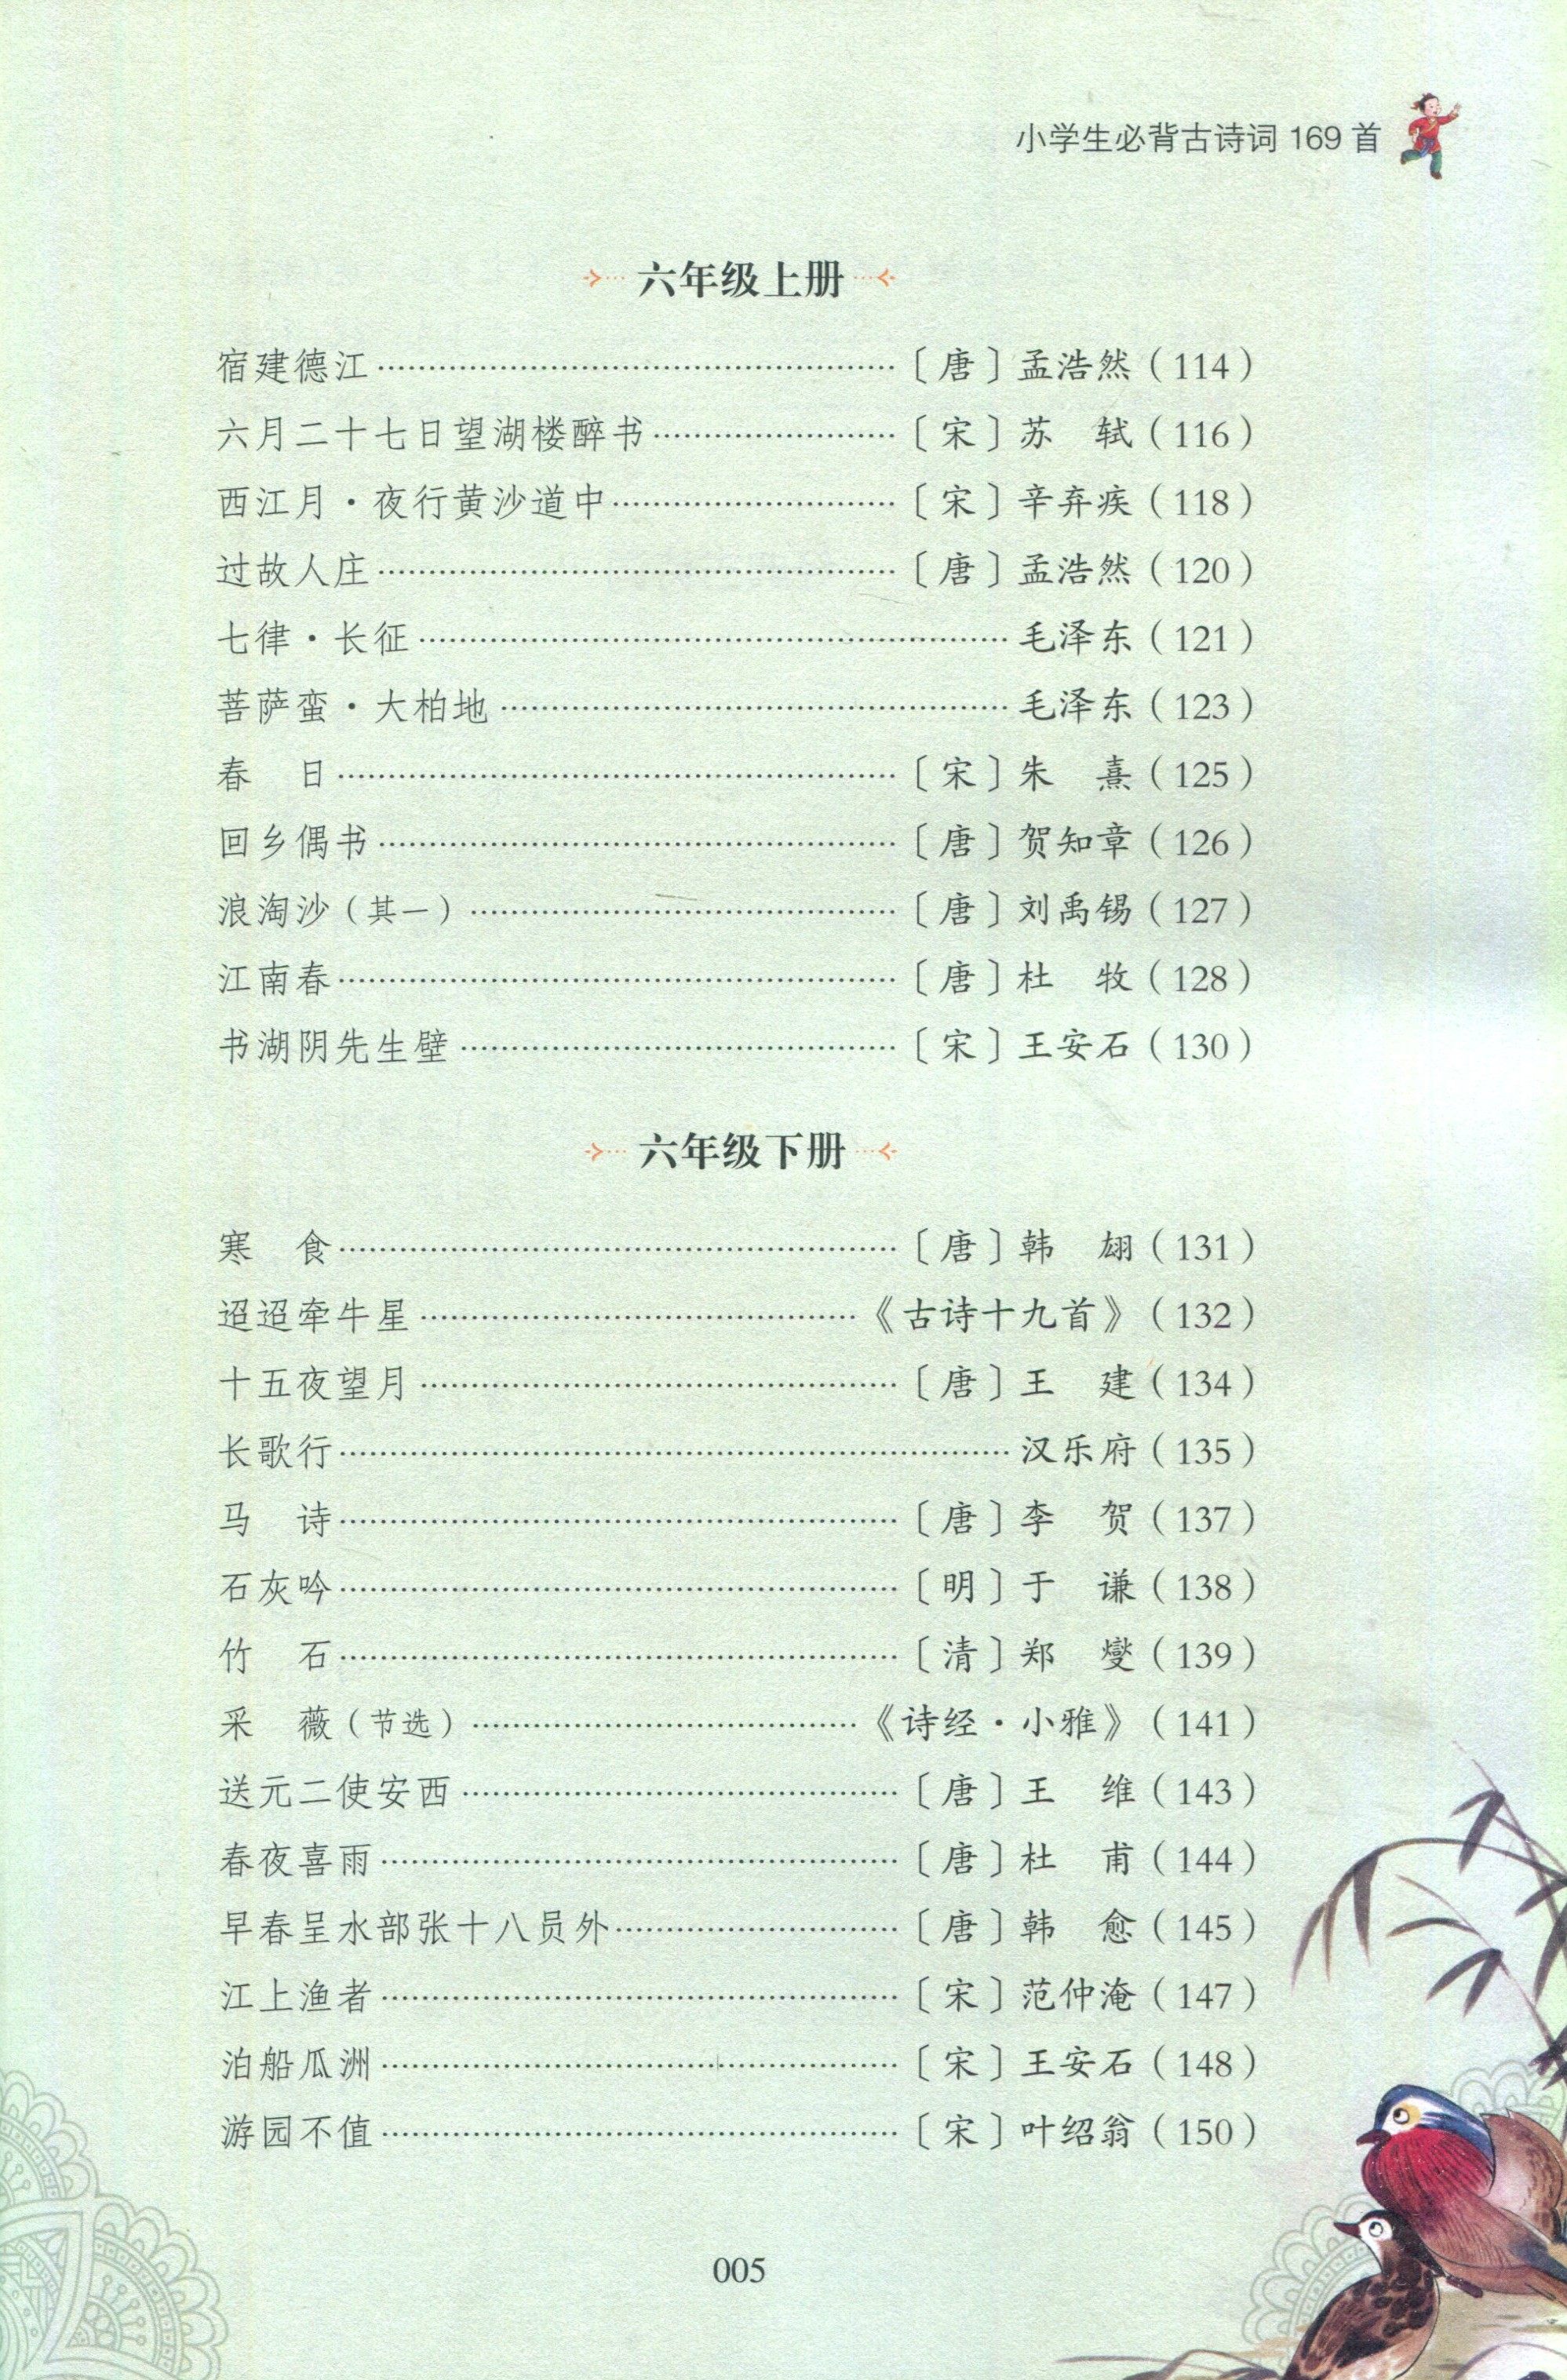 小学生必背古诗词 169 首
六年级上册
宿建德江……………………………………………〔唐〕孟浩然（114）
六月二十七日望湖楼醉书……………………〔宋〕苏　轼（116）
西江月·夜行黄沙道中………………………〔宋〕辛弃疾（118）
过故人庄……………………………………………〔唐〕孟浩然（120）
七律·长征…………………………………………………毛泽东（121）
菩萨蛮·大柏地……………………………………………毛泽东（123）
春　日………………………………………………〔宋〕朱　熹（125）
回乡偶书……………………………………………〔唐〕贺知章（126）
浪淘沙（其一）……………………………………〔唐〕刘禹锡（127）
江南春………………………………………………〔唐〕杜　牧（128）
书湖阴先生壁………………………………………〔宋〕王安石（130）
六年级下册
寒　食………………………………………………〔唐〕韩　翃（131）
迢迢牵牛星……………………………………《古诗十九首》（132）
十五夜望月…………………………………………〔唐〕王　建（134）
长歌行………………………………………………………汉乐府（135）
马　诗………………………………………………〔唐〕李　贺（137）
石灰吟………………………………………………〔明〕于　谦（138）
竹　石………………………………………………〔清〕郑　燮（139）
采　薇（节选）…………………………………《诗经·小雅》（141）
送元二使安西………………………………………〔唐〕王　维（143）
春夜喜雨……………………………………………〔唐〕杜　甫（144）
早春呈水部张十八员外………………………〔唐〕韩　愈（145）
江上渔者……………………………………………〔宋〕范仲淹（147）
泊船瓜洲……………………………………………〔宋〕王安石（148）
游园不值……………………………………………〔宋〕叶绍翁（150）
005